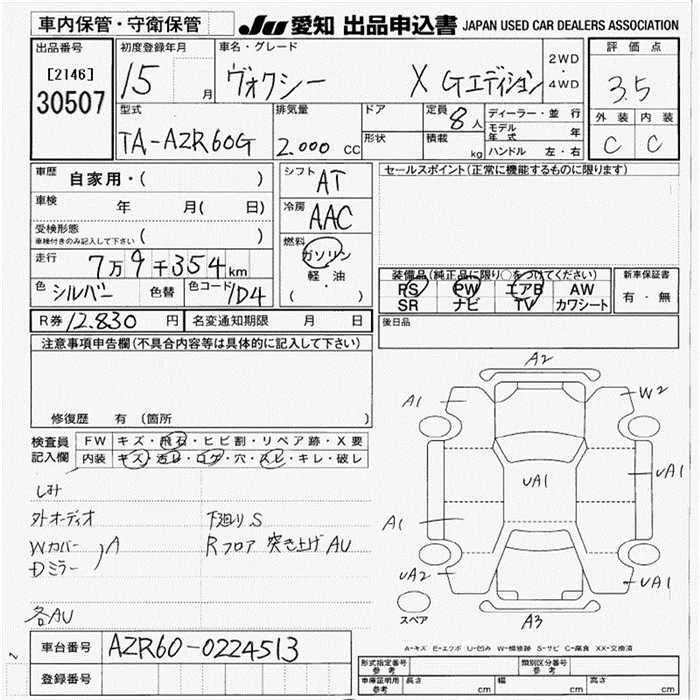 車内保管・守衛保管
JU 愛知 出品申込書 JAPAN USED CAR DEALERS ASSOCIATION
出品番号
[2146]
30507
初度登録年月
15 月
車名・グレード
ヴォクシー X Gエディション
2WD
・
4WD
評価点
3.5
外装 内装
C C
型式
TA-AZR60G
排気量
2.000 CC
ドア
形状
定員
8人
積載
kg
ディーラー・並行
モデル年式 年
ハンドル 左・右
車歴 自家用・( )
車検 年 月( 日)
受検形態
車検付きのみ記入して下さい ( )
走行 7万9千354km
色 シルバー 色替 色コード 1D4
シフト AT
冷房 AAC
燃料
ガソリン
軽・油
( )
セールスポイント(正常に機能するものに限ります)
装備品(純正品に限り○をつけてください)
PS PW エアB AW
SR ナビ TV カワシート
新車保証書
有・無
R券 12.830 円 名変通知期限 月 日
後日品
注意事項申告欄(不具合内容等は具体的に記入して下さい)
修復歴 有 (箇所 )
検査員記入欄
FW キズ・飛石・ヒビ割・リペア跡・X要
内装 キズ・汚レ・コゲ・穴・スレ・キレ・破レ
しみ
外オーディオ
Wカバー
Dミラー
)A
各AU
下廻りS
Rフロア 突き上げAU
A2
A1
W2
UA1
UA1
A1
UA2
UA1
A3
スペア
A-キズ E-エクボ U-凹み W-補修跡 S-サビ C-腐食 XX-交換済
車台番号 AZR60-0224513
登録番号
型式指定番号
参考
類別区分番号
参考
車庫証明用
参考
長さ cm 幅 cm 高さ cm